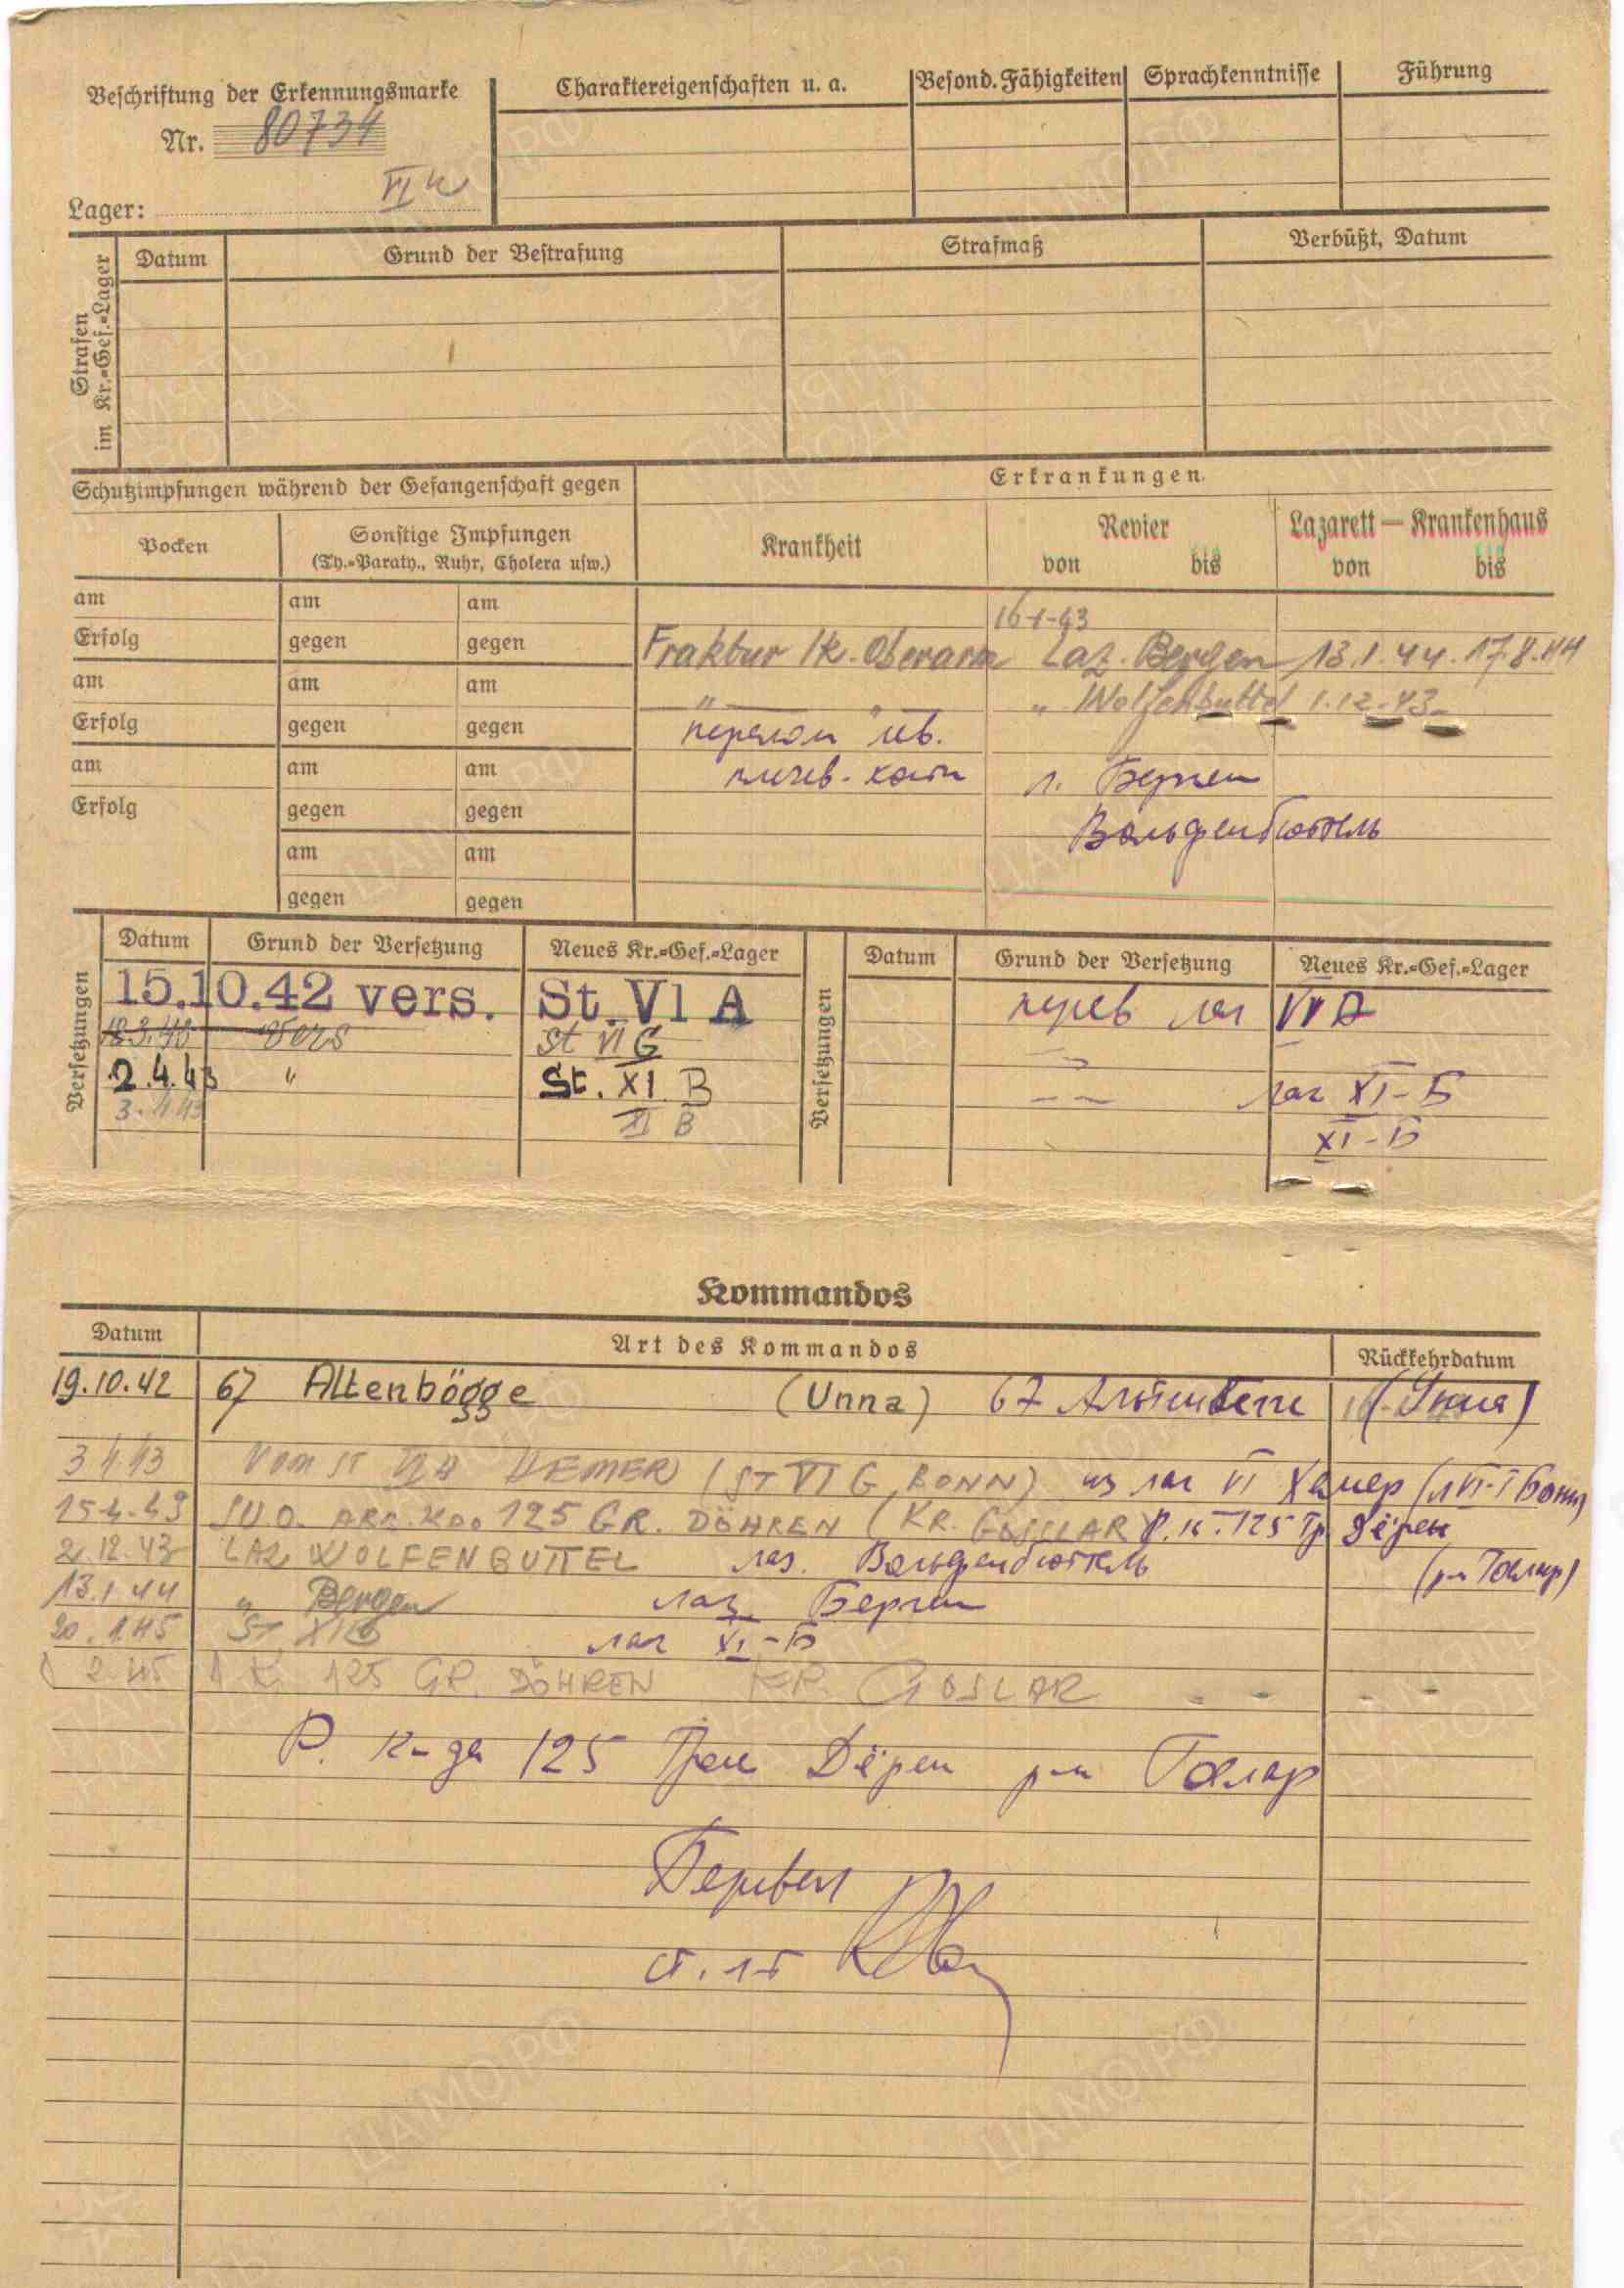 Beschriftung der Erkennungsmarke
Nr. 80734
Lager: VI K
Charaktereigenschaften u. a.
Besond. Fähigkeiten
Sprachkenntnisse
Führung
Strafen im Kr.=Gef.=Lager
Datum
Grund der Bestrafung
Strafmaß
Verbüßt, Datum
Schutzimpfungen während der Gefangenschaft gegen
Erkrankungen
Pocken
Sonstige Impfungen
(Ty.=Paraty., Ruhr, Cholera usw.)
Krankheit
Revier
von bis
Lazarett — Krankenhaus
von bis
am am am
16-1-43
Erfolg gegen gegen
Fraktur lk. Oberarm Laz. Bergen 13.1.44. 17.8.44
am am am
" " " Wolfenbuttel 1.12.43-
Erfolg gegen gegen
перелом лев.
am am am
плечев. кости л. Берген
Erfolg gegen gegen
Вольфенбюттель
am am
gegen gegen
Versetzungen
Datum Grund der Versetzung Neues Kr.=Gef.=Lager
15.10.42 vers. St. VI A
vers St VI G
2.4.43 " St. XI B
3.4.43 XI B
Versetzungen
Datum Grund der Versetzung Neues Kr.=Gef.=Lager
перев лаг VI A
лаг XI-Б
XI-Б
Kommandos
Datum Art des Kommandos Rückkehrdatum
19.10.42 67 Altenbögge (Unna) 67 Альтенбегге (Унна)
3.4.43 Vom ST VI A HEMER (ST VI G, BONN) из лаг VI Хемер (л VI-Г Бонн)
15.4.43 ARB. KDO 125 GR. DÖHREN (KR. GOSLAR) Р.к. 125 Гр. Дёрен
2.12.43 LAZ WOLFENBUTTEL лаз. Вольфенбюттель (р-н Гослар)
13.1.44 " Bergen лаз. Берген
20.1.45 ST XI B лаг XI-Б
2.45 A K. 125 GR. DÖHREN KR. GOSLAR
Р. к-да 125 Грос Дёрен р-н Гослар
Перевел
ст. л-т